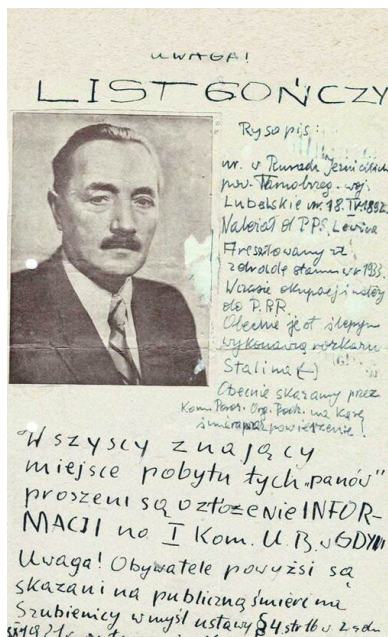 UWAGA!
LIST GOŃCZY
Rysopis:
ur. w Rurach Jezuickich
pow. Tarnobrzeg. woj.
Lubelskie ur. 18.IV.1892
Należał do P.P.S. Lewica
Aresztowany za
zdradę stanu w r 1933.
W czasie okupacji należy
do P.P.R.
Obecnie jest ślepym
wykonawcą rozkazu
Stalina
Obecnie skazany przez
Kom. Org. na karę
śmierci przez powieszenie!
Wszyscy znający
miejsce pobytu tych „panów"
proszeni są o złożenie INFOR-
MACJI na I Kom. U.B. w GDYNI
Uwaga! Obywatele powyżsi są
skazani na publiczną śmierć na
Szubienicy w myśl ustawy §4. str